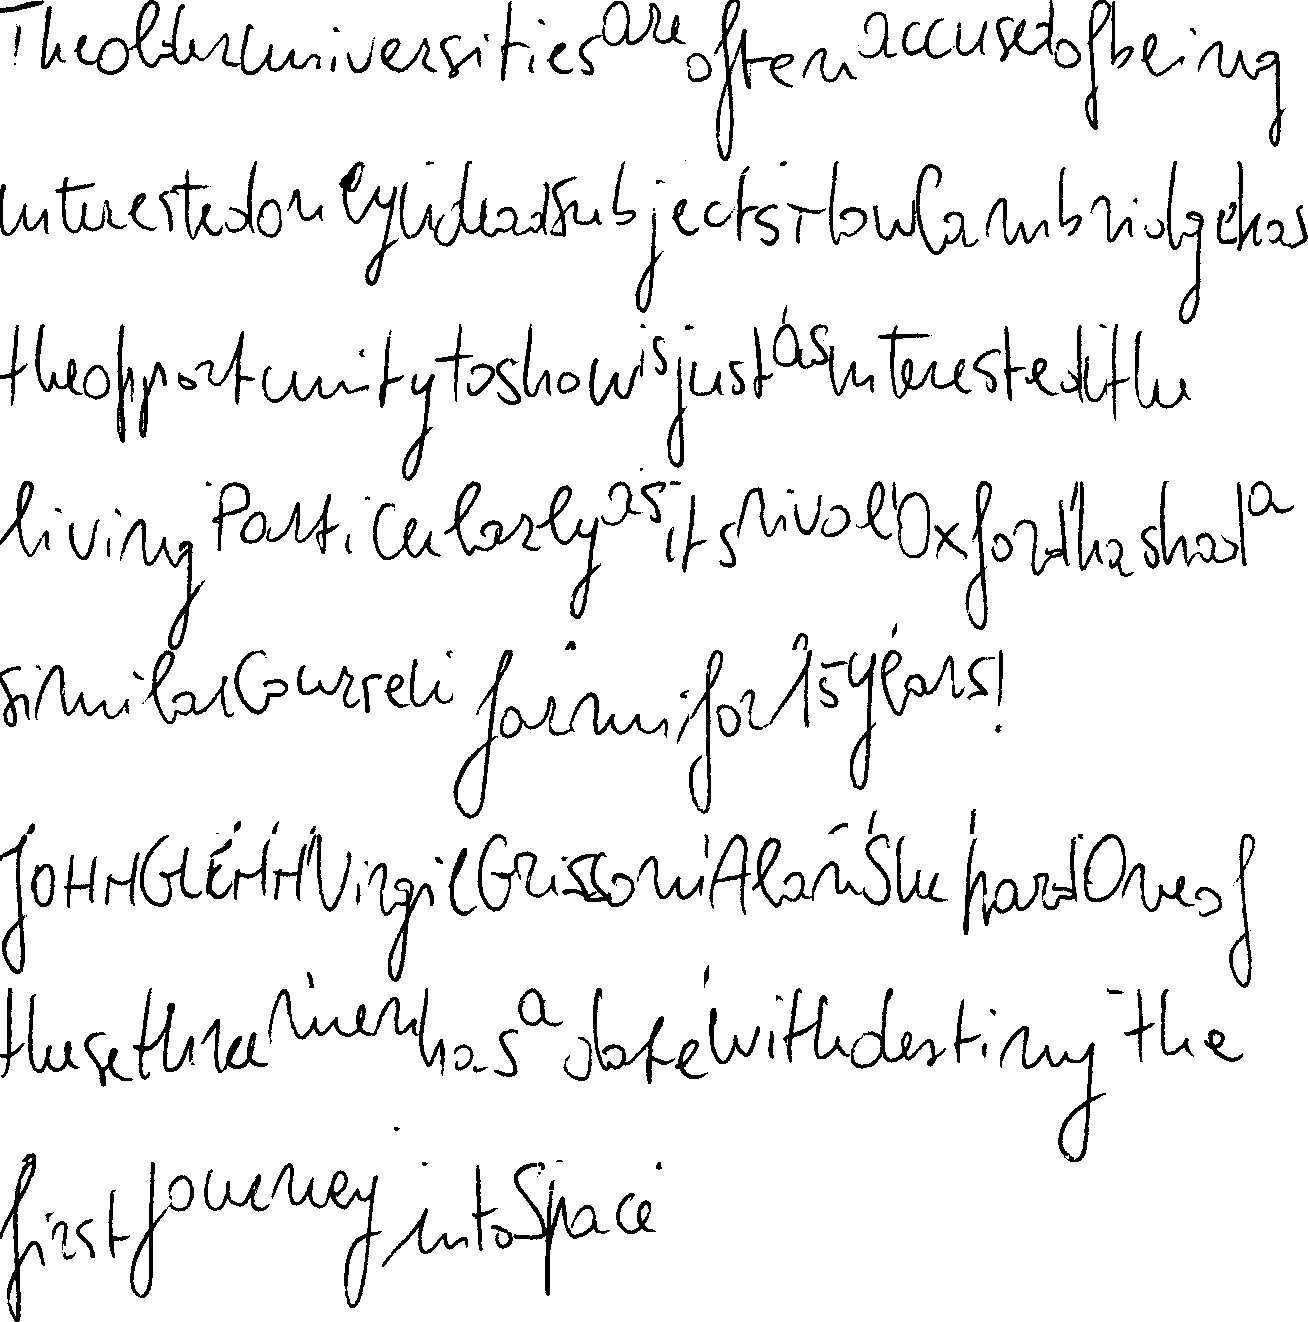 The older universities are often accused of being
interested only in dead subjects. Now Cambridge has
the opportunity to show is just as interested in the
living Particularly as its rival Oxford has had a
similar Course in farming for 15 years!
JOHN GLENN Virgil Grissom Alan Shepard One of
these three men has a date with destiny the
first journey into Space